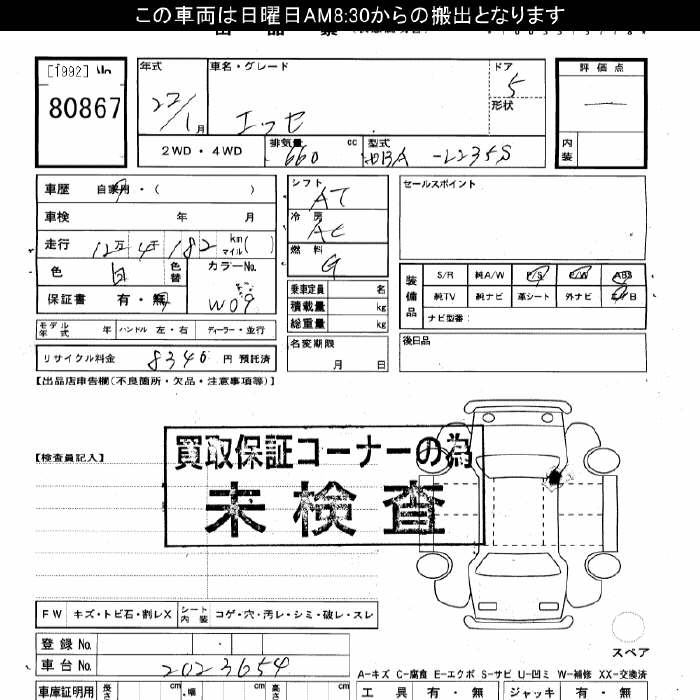 この車両は日曜日AM8:30からの搬出となります
[1992]
80867
年式
22/1月
車名・グレード
エッセ
ドア
5
形状
評価点
内装
2WD・4WD
排気量
660 cc
型式
DBA-L235S
車歴 自家用・( )
車検 年 月
走行 12万4千182 km マイル( )
色 白 色替
カラーNo.
W09
保証書 有・無
モデル年式 年 ハンドル 左・右 ディーラー・並行
リサイクル料金 8340 円 預託済
シフト
AT
冷房
AC
燃料
G
乗車定員 名
積載量 kg
総重量 kg
名変期限
月 日
セールスポイント
装備品
S/R 純A/W P/S P/W ABS
純TV 純ナビ 革シート 外ナビ エアB
ナビ型番:
後日品
【出品店申告欄(不良箇所・欠品・注意事項等)】
【検査員記入】
買取保証コーナーの為
未検査
FW キズ・トビ石・割レX シート内装 コゲ・穴・汚レ・シミ・破レ・スレ
登録 No.
車台 No. 2023654
スペア
A-キズ C-腐食 E-エクボ S-サビ U-凹ミ W-補修 XX-交換済
車庫証明用 長さ cm 幅 cm 高さ cm
工具 有・無 ジャッキ 有・無